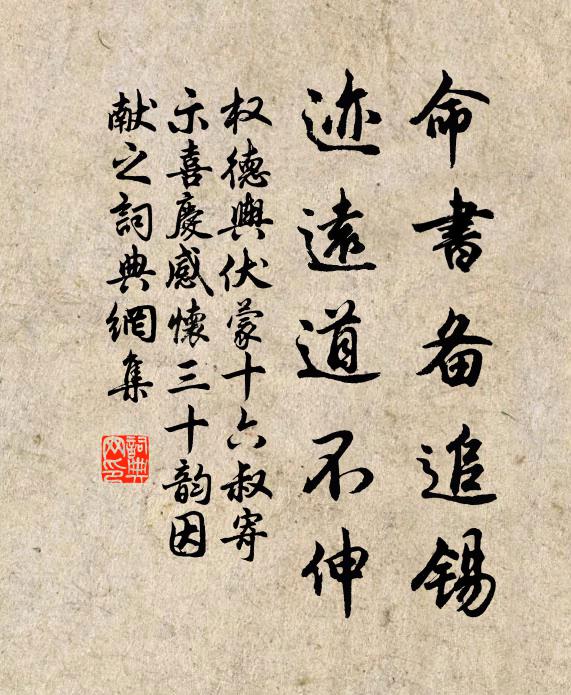 命書备追锡
迹遠道不伸
权德輿伏蒙十六叔寄
示喜慶感懷三十韵因
献之詞典網集
詞典网印